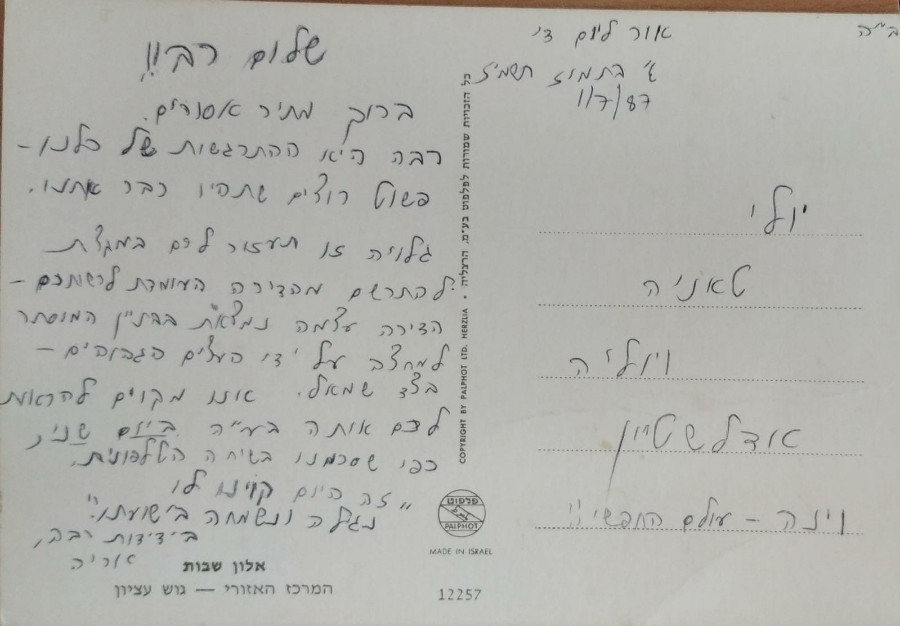 ב"ה
אור ליום ד'
ד' בתמוז תשמ"ז
1/7/87
שלום רב!!
ברוך מתיר אסורים.
רבה היא ההתרגשות של כלנו -
פשוט רוצים שתהיו כבר אתנו.
גלויה זו תעזור לכם במקצת
להתרשם מהדירה העומדת לרשותכם -
הדירה עצמה נמצאת בבנין המוסתר
למחצה על ידי העצים הגבוהים -
בצד שמאל. אנו מקוים להראות
לכם אותה בע"ה ביום שני,
כפי שסכמנו בשיחה הטלפונית.
"זה היום קוינו לו
נגילה ונשמחה בישועתו."
בידידות רבה,
אריה
אלון שבות
המרכז האזורי — גוש עציון
כל הזכויות שמורות לפלפוט בע"מ, הרצליה • COPYRIGHT BY PALPHOT LTD. HERZLIA
פלפוט
PALPHOT
MADE IN ISRAEL
12257
יולי
טאניה
ויוליה
אדלשטיין
וינה - עולם החפשי!!